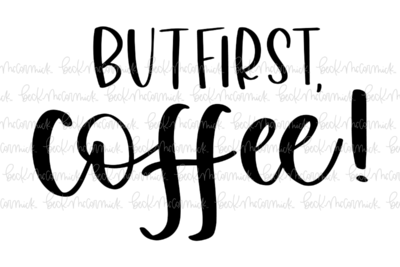 BUT FIRST,
coffee!